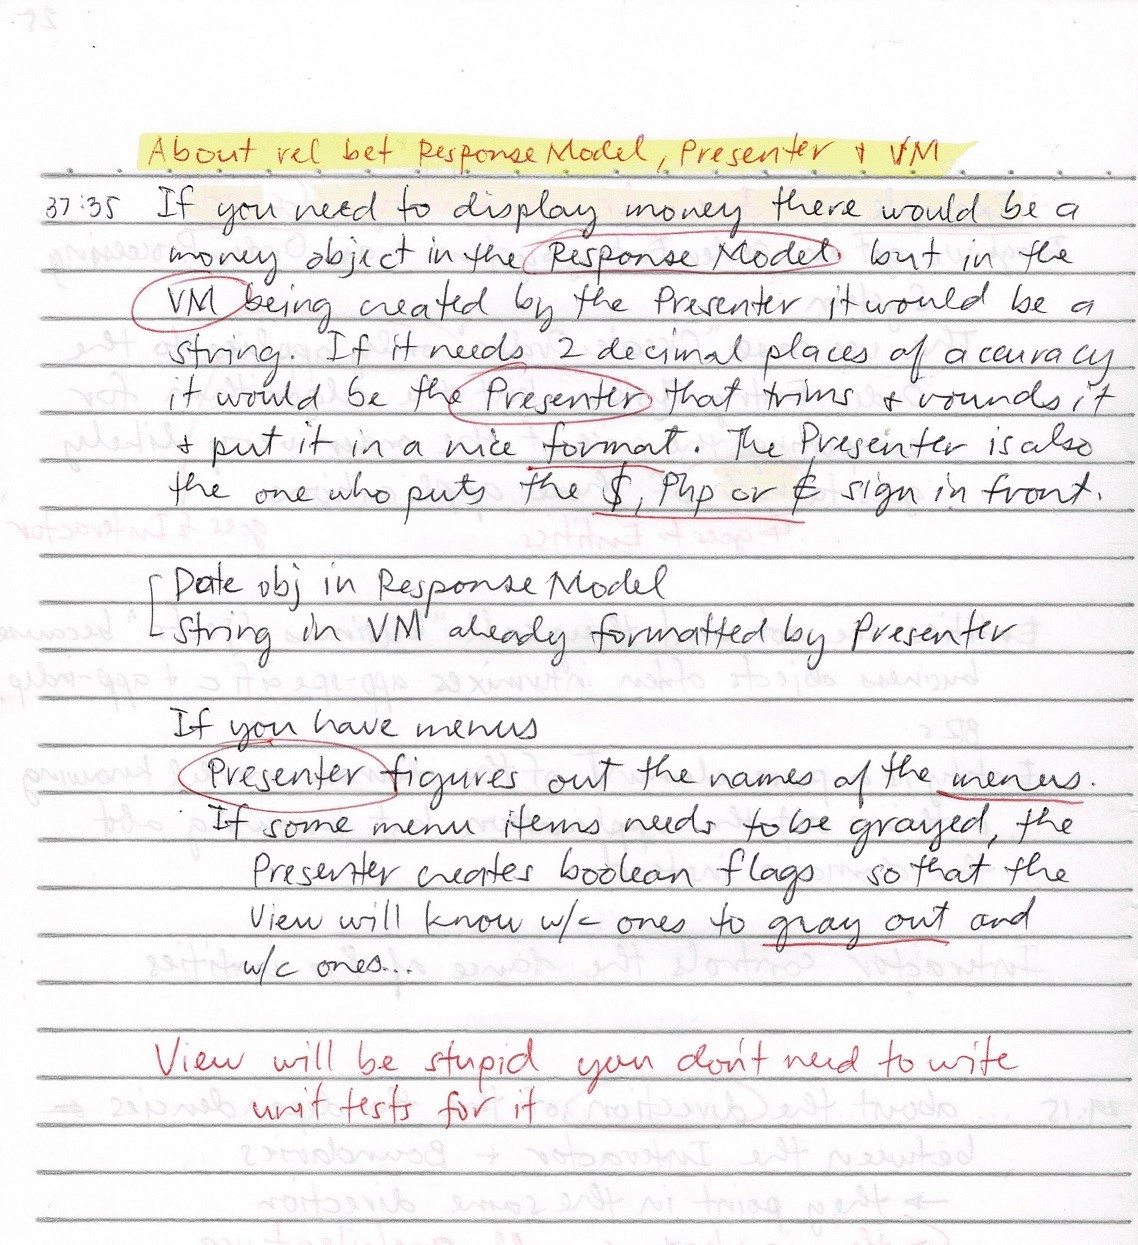 About rel bet Response Model, Presenter & VM
37:35 If you need to display money there would be a
money object in the Response Model but in the
VM being created by the Presenter it would be a
string. If it needs 2 decimal places of accuracy
it would be the Presenter that trims & rounds it
& put it in a nice format. The Presenter is also
the one who puts the $, Php or € sign in front.
Date obj in Response Model
String in VM already formatted by Presenter
If you have menus
Presenter figures out the names of the menus.
If some menu items needs to be grayed, the
Presenter creates boolean flags so that the
View will know w/c ones to gray out and
w/c ones...
View will be stupid you don't need to write
unit tests for it